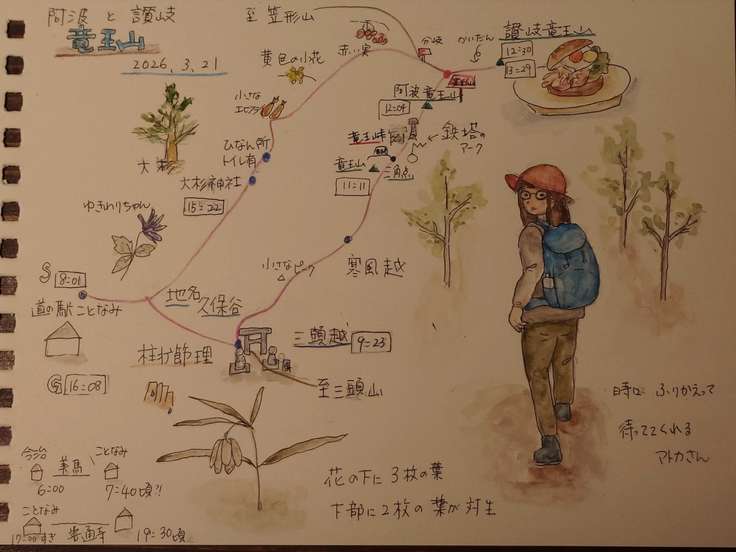 阿波と讃岐
竜王山
2026.3.21
至笠形山
赤い実
分岐
かいだん
讃岐竜王山
12:30
13=29
黄色の小花
小さな
大杉
ひなん所
トイレ有
大杉神社
15=22
阿波竜王山
12:04
竜王峠
鉄塔の
アーク
竜王山
三角点
11=11
ゆきわりちゃん
小さなピーク
寒風越
S 8=01
道の駅ことなみ
G 16=08
地名
久保谷
三頭越
9=23
至三頭山
柱状節理
花の下に3枚の葉
下部に2枚の葉が対生
時にふりかえって
待っててくれる
マトカさん
今治
美馬
ことなみ
6=00
7=40頃?!
ことなみ
善通寺
17=00すぎ
19=30頃